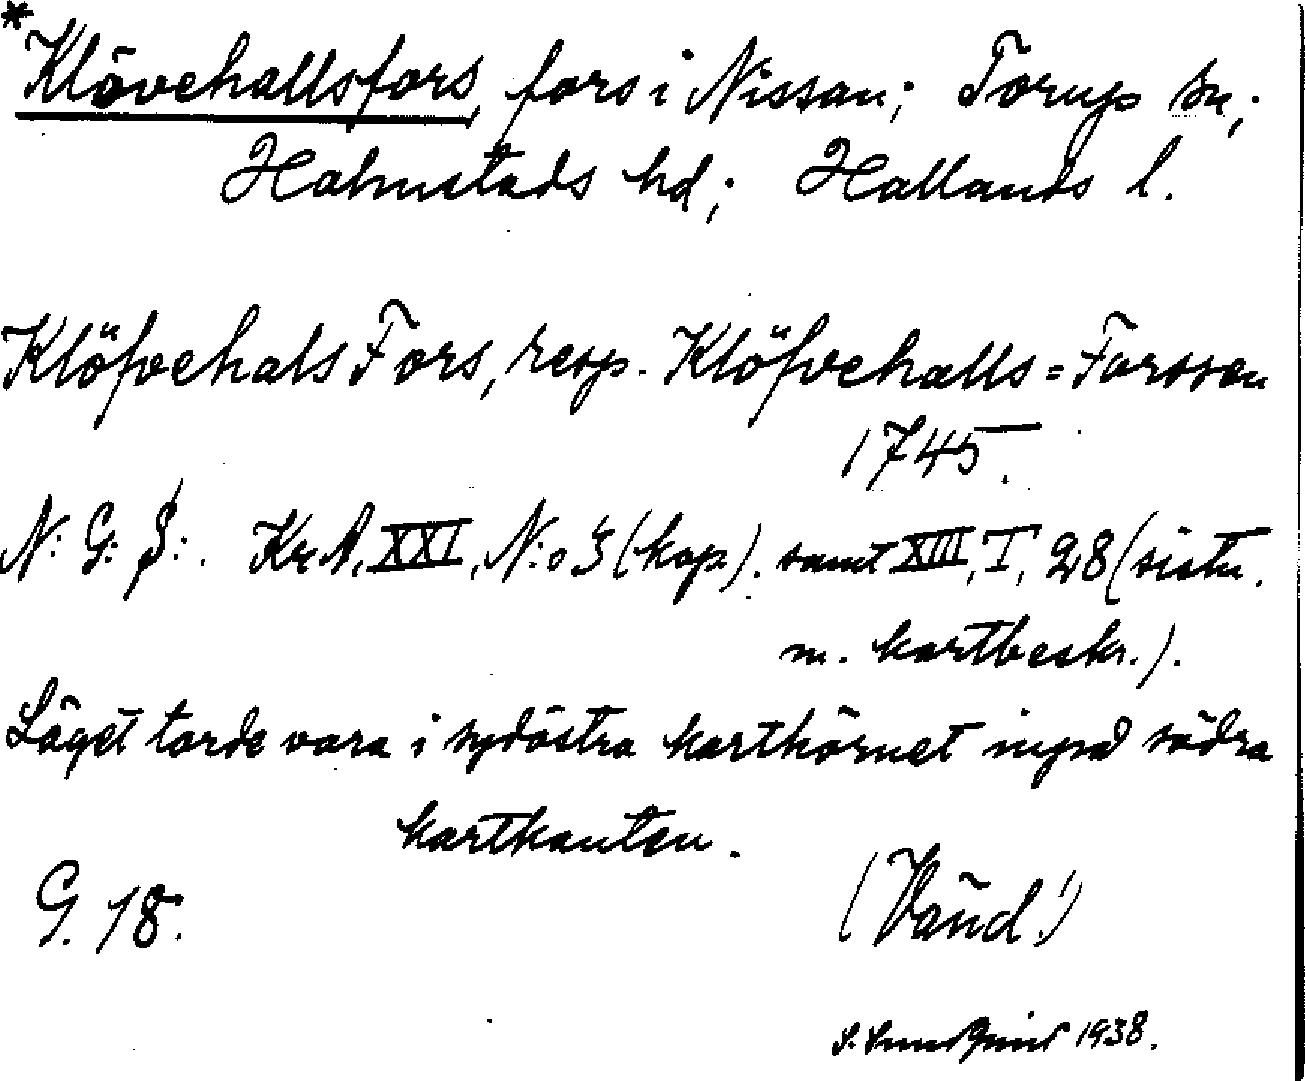 *Klövehallsfors, fors i Nissan; Torup sn;
Halmstads hd; Hallands l.
Klöfvehals Fors, resp. Klöfvehalls=Forssen
1745.
N: G: S: . Kr A, XXI, N:o 3 (kop.). samt XIII, I, 28 (sistn.
m. kartbeskr.).
Läget torde vara i sydöstra karthörnet invid södra
kartkanten.
G. 18. (Vänd!)
S. 1938.